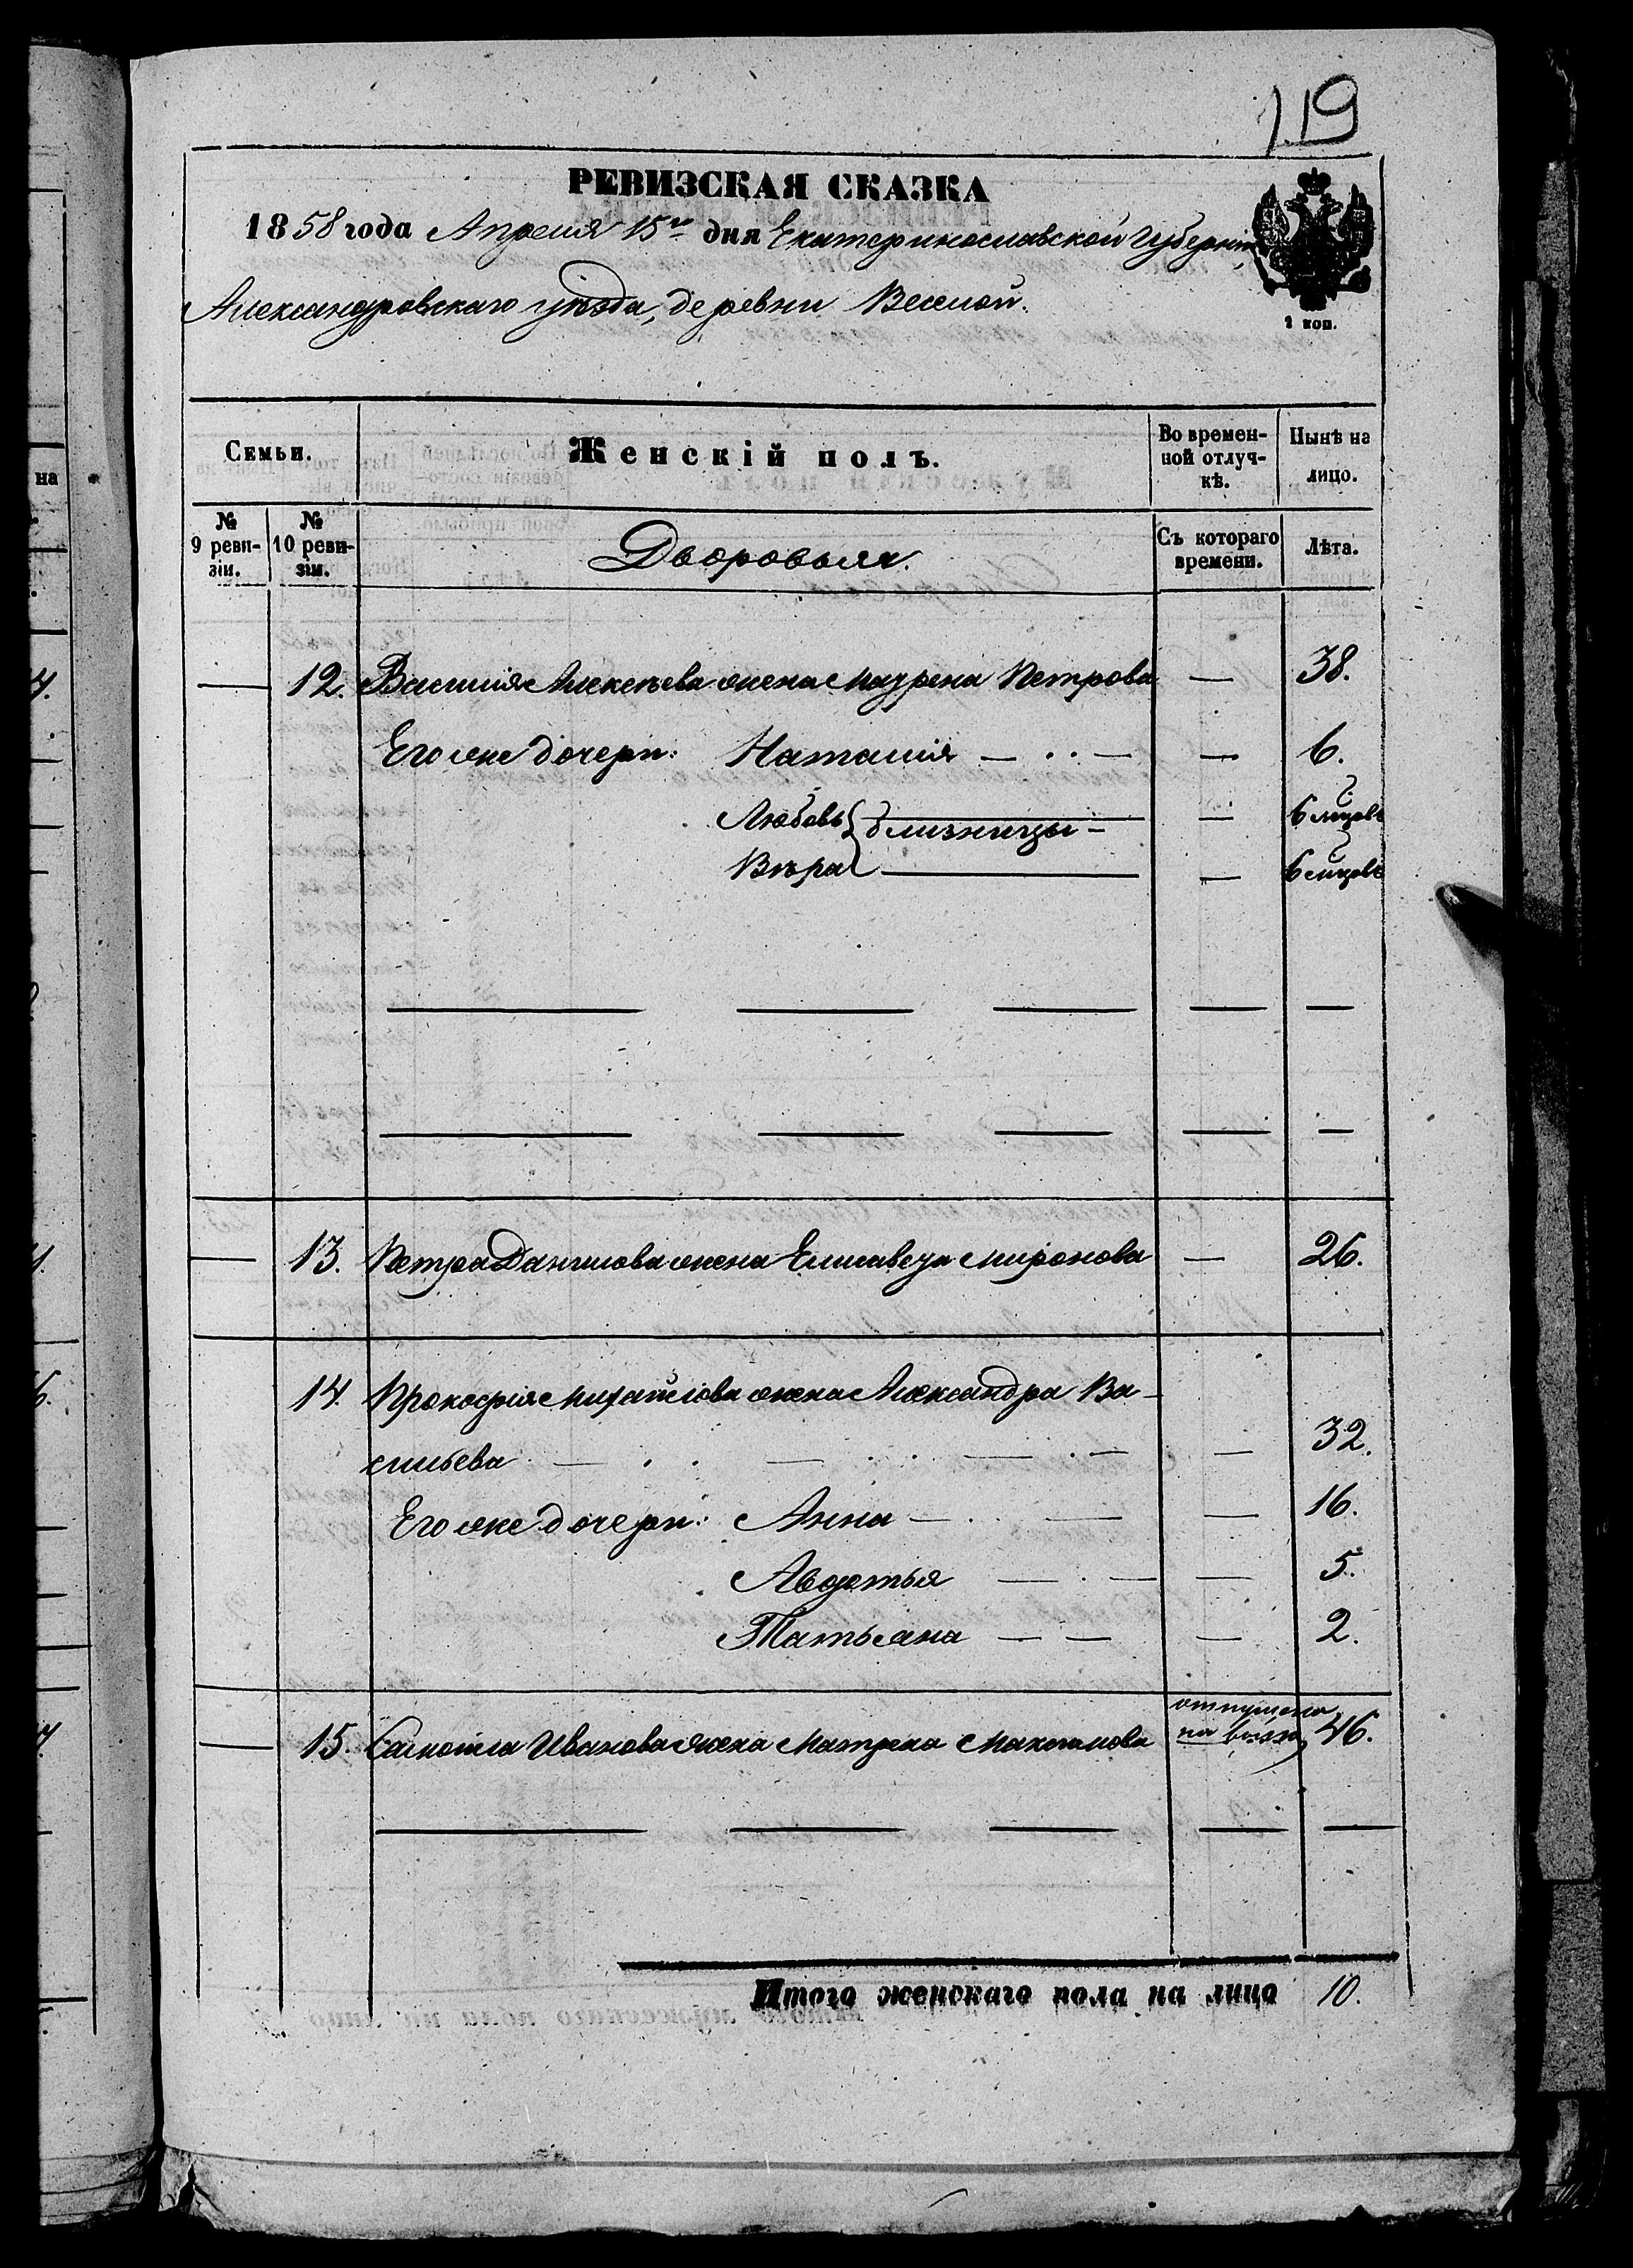 119
РЕВИЗСКАЯ СКАЗКА
1858 года Апреля 15го дня Екатеринославской Губерніи
Александровскаго уѣзда, деревни Веселой.
1 коп.
Семьи.
Женскій полъ.
Во времен-
ной отлуч-
кѣ.
Нынѣ на
лицо.
№
9 реви-
зіи.
№
10 реви-
зіи.
Дворовыя.
Съ котораго
времени.
Лѣта.
на
12. Василія Алексѣева жена Маурена Петрова — 38.
Его же дочери: Наталія — — 6.
Любовь } близницы — — 6 мцовъ
Вѣра — 6 мцовъ
13. Петра Данилова жена Елисавета Миронова — 26.
14. Прокофія Михайлова жена Александра Ва-
сильева — — 32.
Его же дочери: Анна — — 16.
Авдотья — — 5.
Татьяна — — 2.
отпущена
15. Самойла Иванова жена Матрена Максимова на волю 46.
Итого женскаго пола на лицо 10.